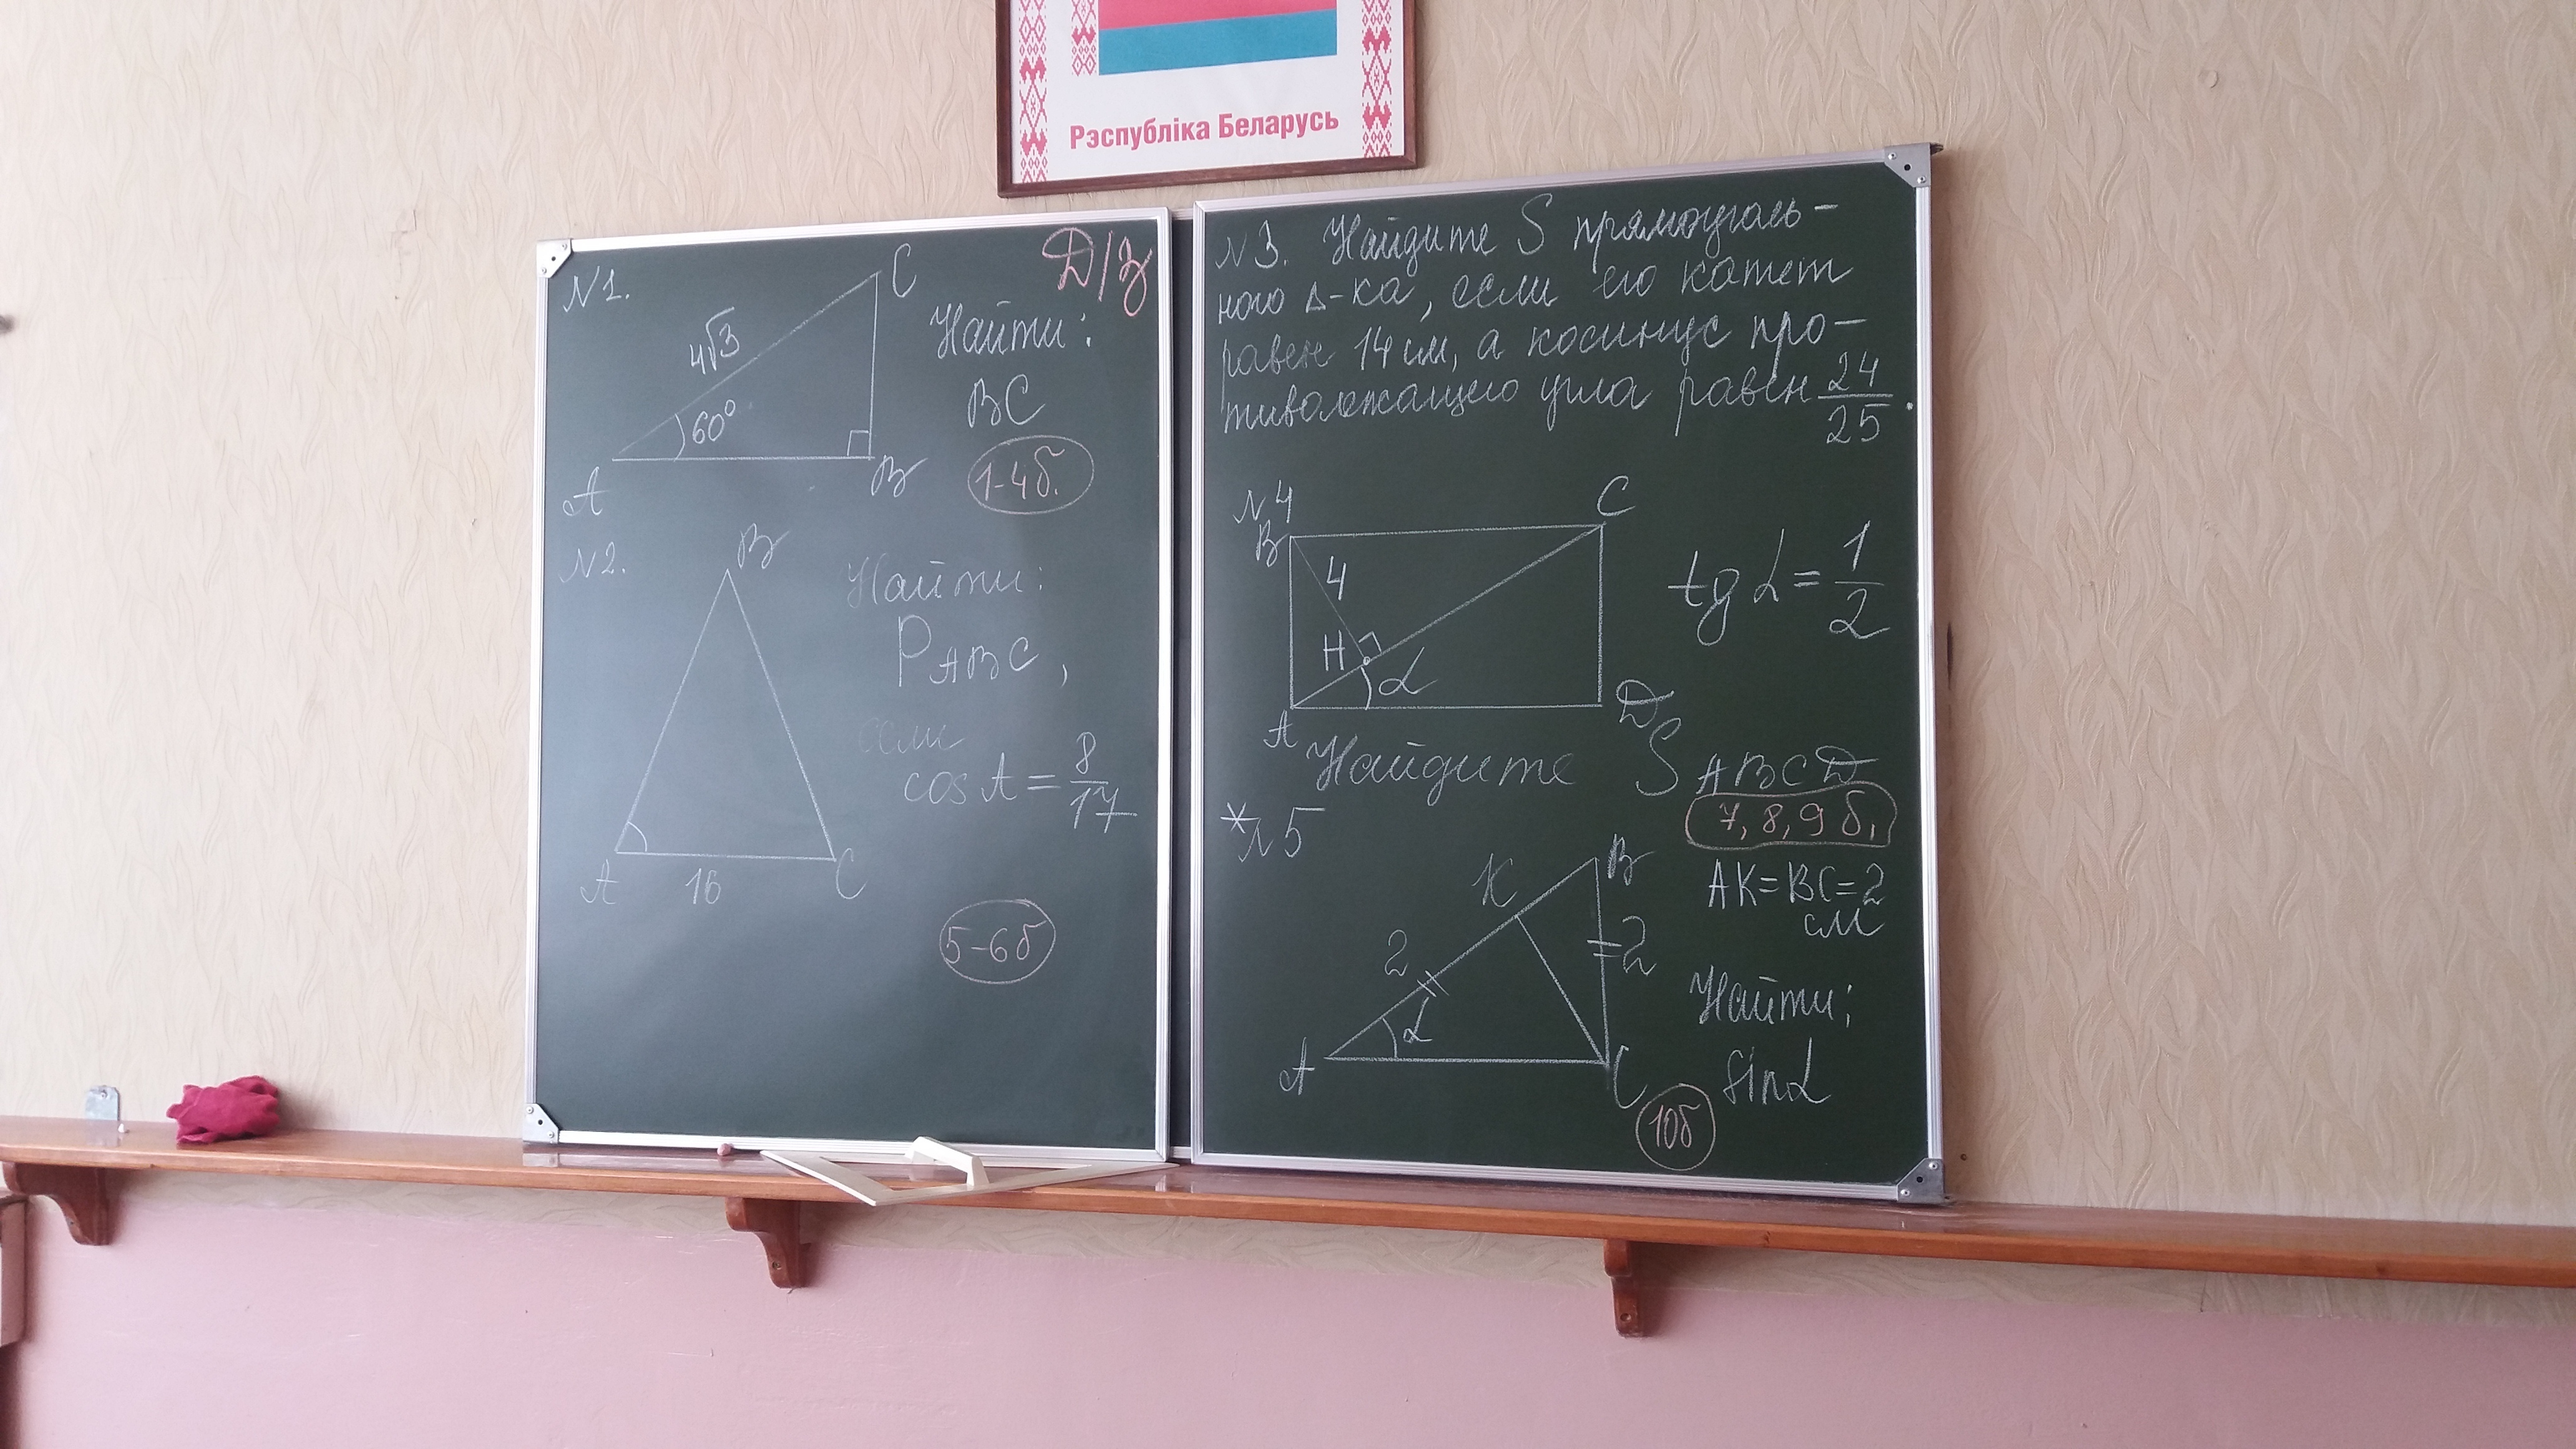 Рэспубліка Беларусь
Д/з
N1.
C
4√3
60°
A
B
Найти:
BC
1-4б.
N2.
B
A
16
C
Найти:
P ABC,
если
cos A = 8/17
5-6б
N3. Найдите S прямоуголь-
ного Δ-ка, если его катет
равен 14 см, а косинус про-
тиволежащего угла равен 24/25.
N4
B
C
4
H
α
A
D
tg α = 1/2
Найдите S ABCD
7, 8, 9 б.
*N5
K
B
2
2
α
A
C
AK=BC=2
см
Найти:
sinα
10б